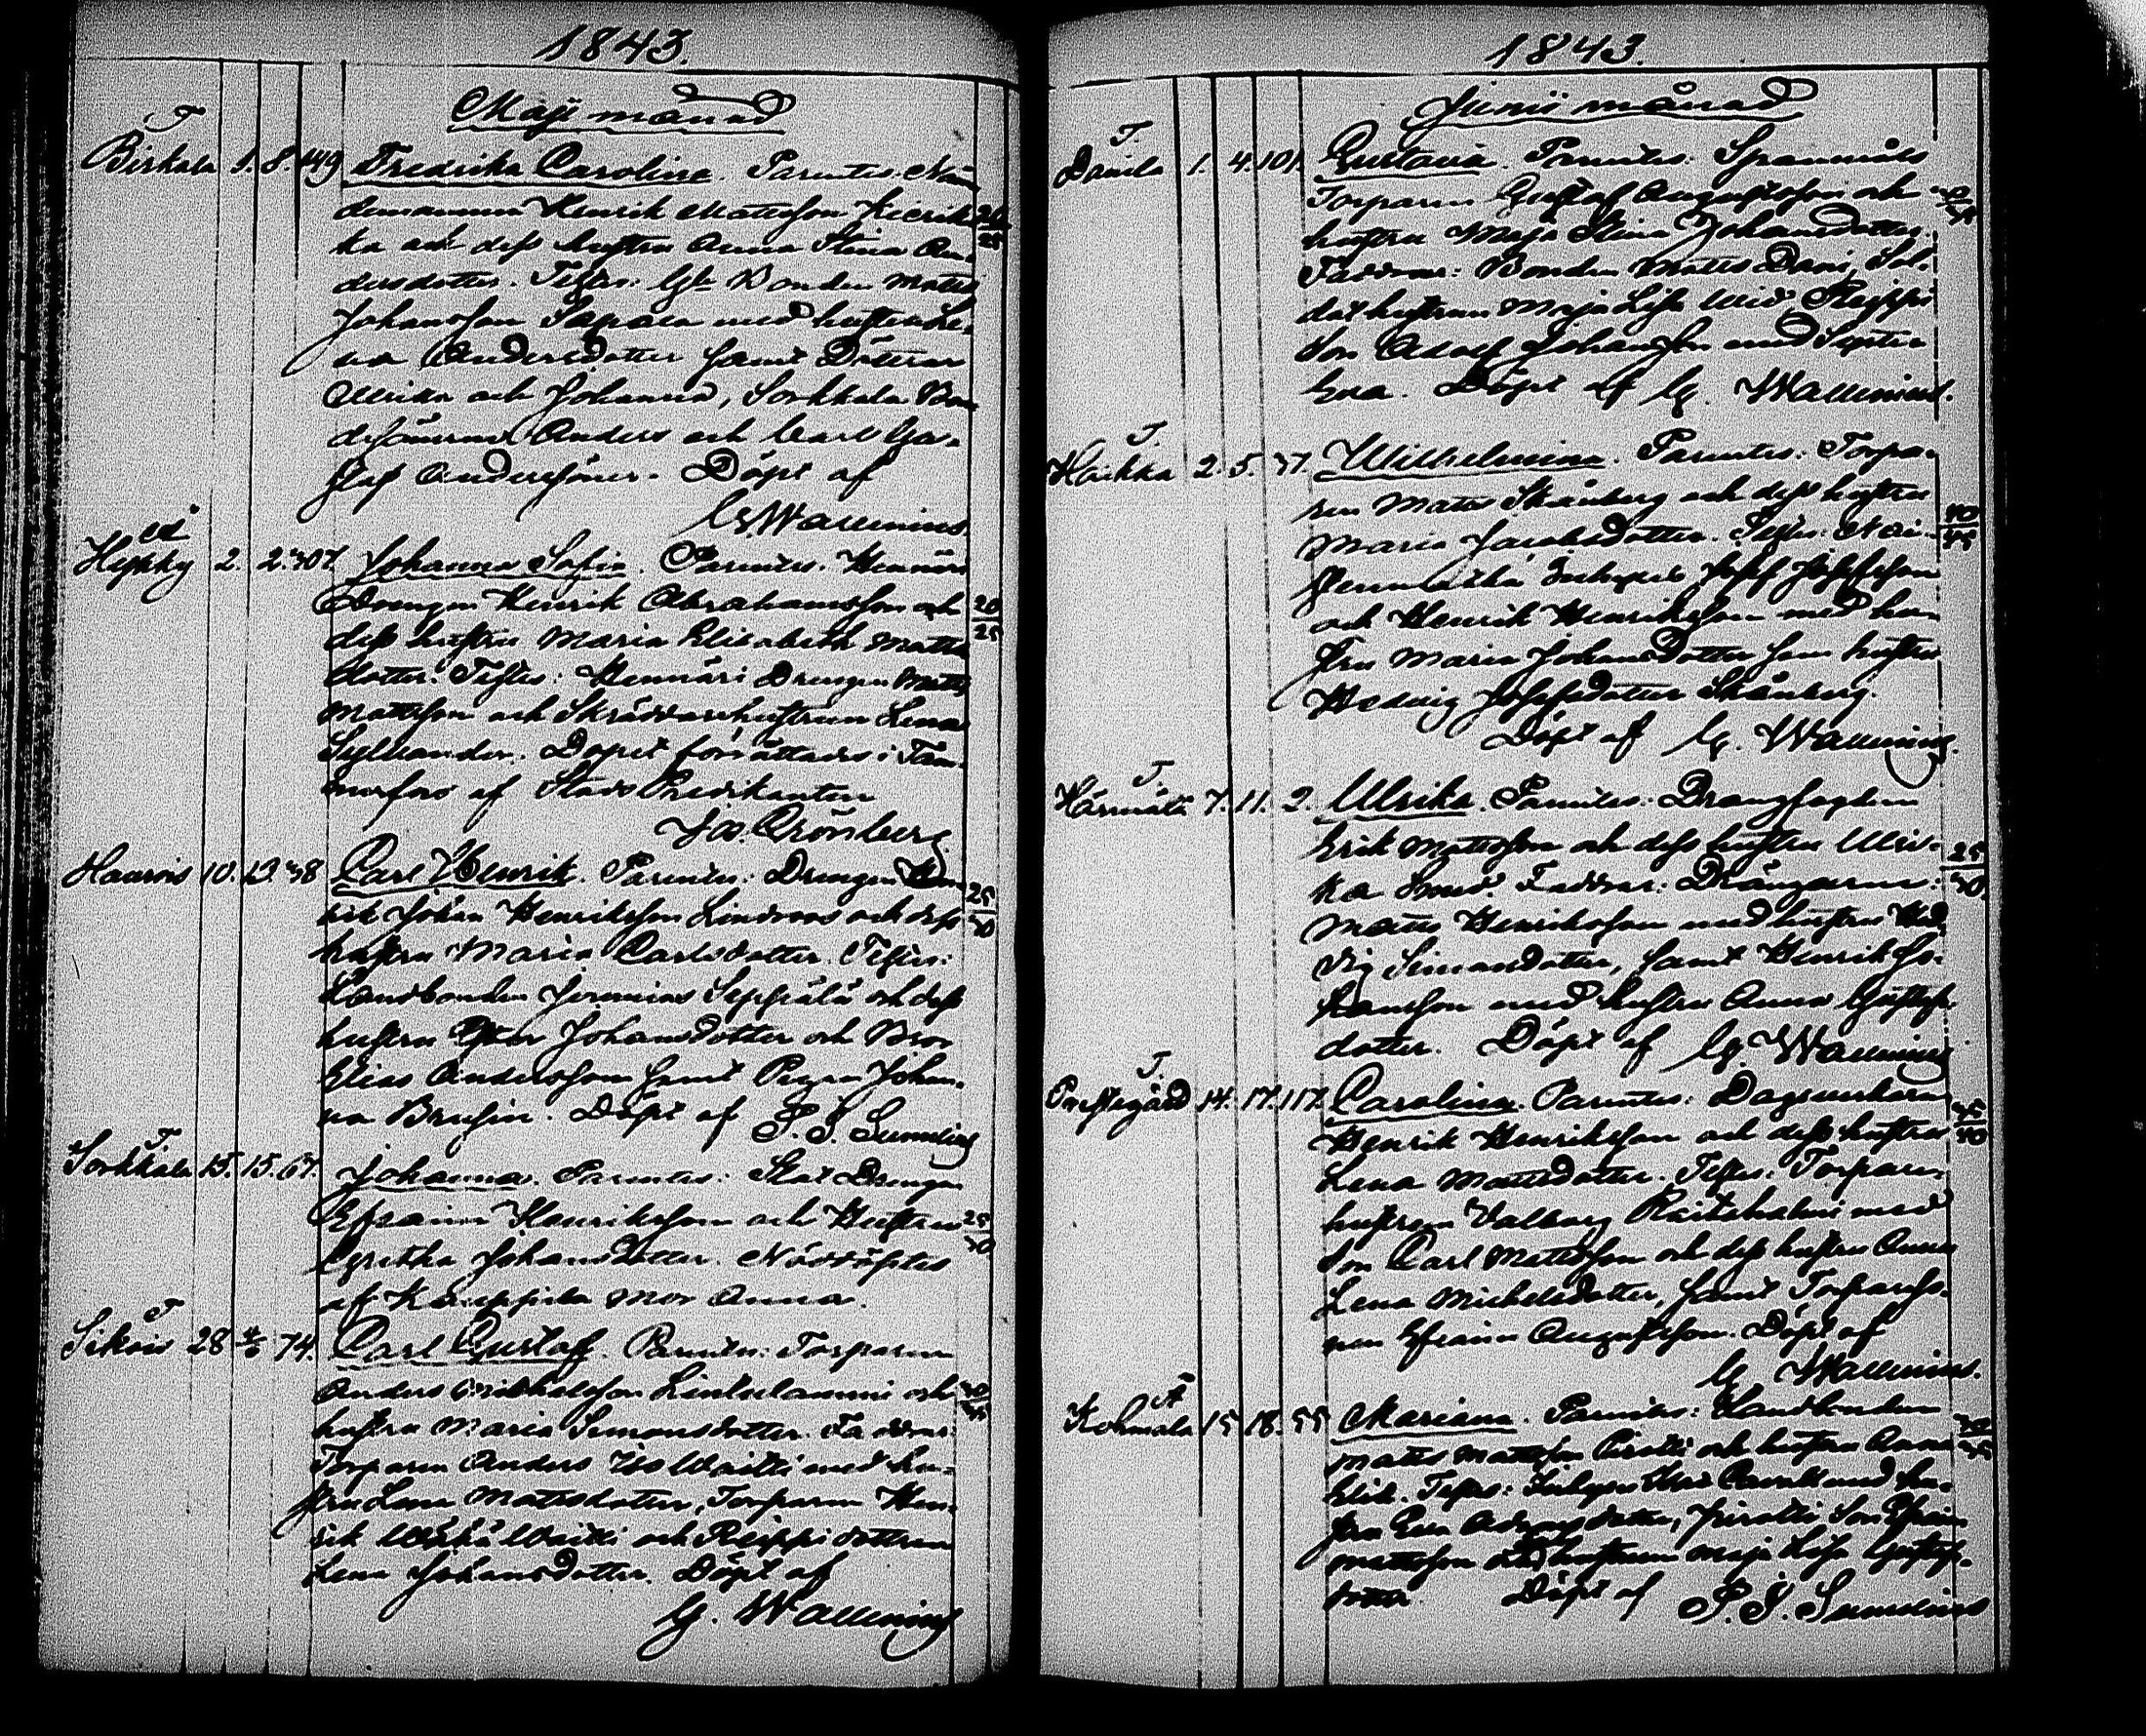 1843.
Maji månad
T
Birkala 1. 8. 149 Fredrika Carolina. Parentes: Nän
demannen Henrik Mattsson Kierik 20/25
ka och dess hustru Anna Stina An
dersdotter. Testes: Gl. Bonden Matts
Johansson med hustru Le
na Andersdotter samt Döttrar
Ulrika och Johanna, Sorkkala Bon
desönerna Anders och Carl Gu
staf Anderssöner. Döpt af
G. Wallenius.
Hyhky 2. 2. 307. Johanna Sofia. Parentes: Hennäri
Drengen Henrik Abrahamsson och 20/25
dess hustru Maria Elisabeth Matts
dotter. Testes: Hennäri Drengen Matts
Mattsson och Skräddarehustrun Lena
Syllander. Dopet förrättades i Tam
merfors af Stads Predikanten
Jos. Grönberg
Haurois 10. 13. 38 Carl Henrik. Parentes: Drengen Hen
rik Johan Henriksson Lindroos och dess 25/30
hustru Maria Carlsdotter. Testes:
Landbonden Jeremias Seppälä och dess
hustru Ester Johansdotter och Bror
Elias Andersson samt Pigan Johan
na Brusin. Döpt af J. J. Sumelius
T
Sorkkala 15. 15. 67. Johanna. Parentes: Skat Drengen
Efraim Henriksson och Hustru 25/30
Gretha Johansdotter. Nöddöptes
af Kauppila mor Anna.
T
Sikois 28 74. Carl Gustaf. Parentes: Torparen
Anders Michelsson Lintulammi och
hustru Maria Simonsdotter. Faddrar:
Torparen Anders med hu
stru Lena Mattsdotter, Torparen Hen
rik och Reippi dottren
Lena Johansdotter. Döpt af
G. Wallenius
1843.
Junii månad
T.
Danila 1. 4. 101. Gustava. Parentes: Spannmåls
Torparen Gustaf Augustsson och
hustru Maja Stina Johansdotter.
Faddrar: Bonden Matts Dani, Sol
dat hustrun Maja Lisa Reippi
Son Adolf Johansson med Syster
Eva. Döpt af G. Wallenius.
T.
Haikka 2. 5. 37. Wilhelmina. Parentes: Torpa
ren Matts Skånberg och dess hustru 40/45
Maria Jacobsdotter. Testes: Nai
Inhyses Josef Josefsson
och Henrik Henriksson med hu
stru Maria Johansdotter samt hustru
Hedvig Josefsdotter Skånberg.
Döpt af G. Wallenius.
T.
Härmälä 7. 11. 2. Ulrika. Parentes: Drängfogden
Erik Mattsson och dess hustru Ulri 25/30
ka Faddrar: Drängarne
Matts Henriksson med hustru Hed
vig Simonsdotter, samt Henrik Jo
hansson med hustru Anna Gustafs
dotter. Döpt af G. Wallenius
T.
Prestegård 14. 17. 117. Carolina. Parentes: Dagsverkaren
Henrik Henriksson och dess hustru
Lena Mattsdotter. Testes: Torpare
hustrun Valborg med
Son Carl Mattsson och dess hustru Anna
Lena Michelsdotter, samt Torpareso
nen Efraim Augustsson. Döpt af
G. Wallenius.
Kolmala 15 18. 55 Mariana. Parentes: Landbonden
Matts Mattsson och hustru Anna
Elis. Testes: med hu
stru Eva Adamsdotter, Son Efraim
Mattsson och hustrun Maja Lisa Gustafs
dotter. Döpt af J. J. Sumelius